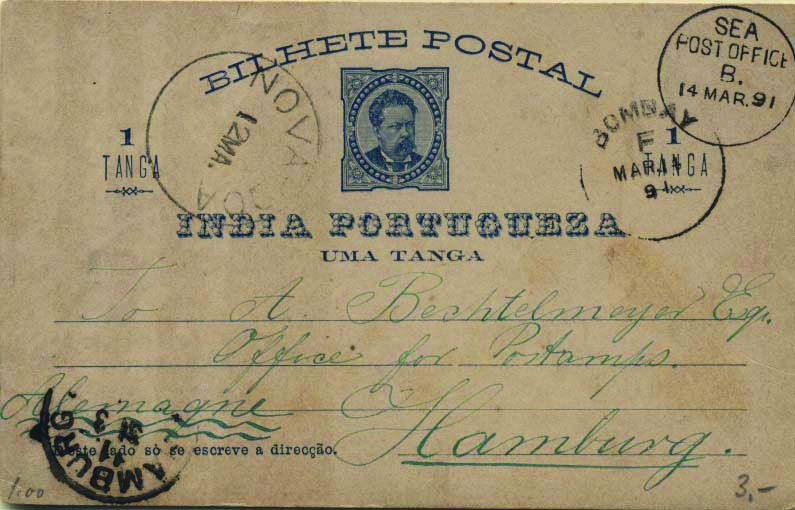 BILHETE POSTAL
SEA
POST OFFICE
B.
14 MAR. 91
NOVA GOA
12 MA.
BOMBAY
F
MAR 14
91
1
TANGA
1
TANGA
INDIA PORTUGUEZA
UMA TANGA
To A. Bechtelmeyer Esq.
Office for Postamps.
Alemagne Hamburg.
HAMBURG.
31
3
D'este lado só se escreve a direcção.
1.00
3,-